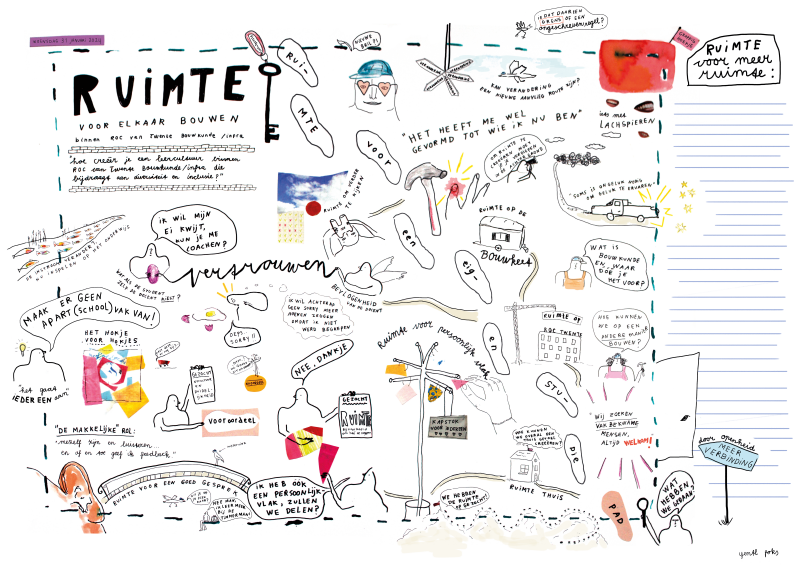 WOENSDAG 31 JANUARI 2024
RUIMTE
VOOR ELKAAR BOUWEN
binnen ROC van Twente Bouwkunde/infra
"hoe creëer je een leercultuur binnen
ROC van Twente Bouwkunde/infra die
bijdraagt aan diversiteit en inclusie?"
RUI-
MTE
VOOR
een
eig-
en
STU-
DIE
PAD
NIEUWE
BRIL OP
IS DAT DAAR EEN
GRENS OF EEN
ongeschreven regel?
KAN VERANDERING
EEN NIEUWE AANVLIEG ROUTE ZIJN?
RUIMTE
voor meer
ruimte:
iets met
LACHSPIEREN
"HET HEEFT ME WEL
GEVORMD TOT WIE IK NU BEN"
RUIMTE OM VERDER
TE KIJKEN
"SOMS IS ONGELUK NODIG
OM GELUK TE ERVAREN"
RUIMTE OP DE
BOUWKEET
WAT IS
BOUWKUNDE
EN WAAR
DOE JE
HET VOOR?
IK WIL MIJN
EI KWIJT,
KUN JE ME
COACHEN?
vertrouwen
WAT ALS DE STUDENT
ZELF DE DOCENT KIEST?
BEVLOGENHEID
VAN DE DOCENT
MAAK ER GEEN
APART (SCHOOL)VAK VAN!
OEPS..
SORRY!!
IK WIL ACHTERAF
GEEN SORRY MEER
HOEVEN ZEGGEN
OMDAT IK NIET
WERD BEGREPEN
HET HOKJE
VOOR HOKJES
"het gaat
IEDEREEN aan"
GEZOCHT
Vooroordeel
NEE, DANKJE
GEZOCHT
RUIMTE
Ruimte voor persoonlijk vlak
KAPSTOK
VOOR HOEKEN
RUIMTE OP
ROC TWENTE
HOE KUNNEN
WE OP EEN
ANDERE MANIER
BOUWEN?
"WIJ ZOEKEN
VAKBEKWAME
MENSEN,
ALTIJD WELKOM!"
HOE KUNNEN
WE OVERAL EEN
THUIS GEVOEL
CREËREN?
RUIMTE THUIS
"DE MAKKELIJKE" ROL:
"mezelf zijn en luisteren...
en af en toe geef ik feedback"
RUIMTE VOOR EEN GOED GESPREK
IK HEB OOK
EEN PERSOONLIJK-
VLAK, ZULLEN
WE DELEN?
WE HEBBEN
DE RUIMTE
door openheid
MEER
VERBINDING
WAT
HEBBEN
WE GEDAAN?